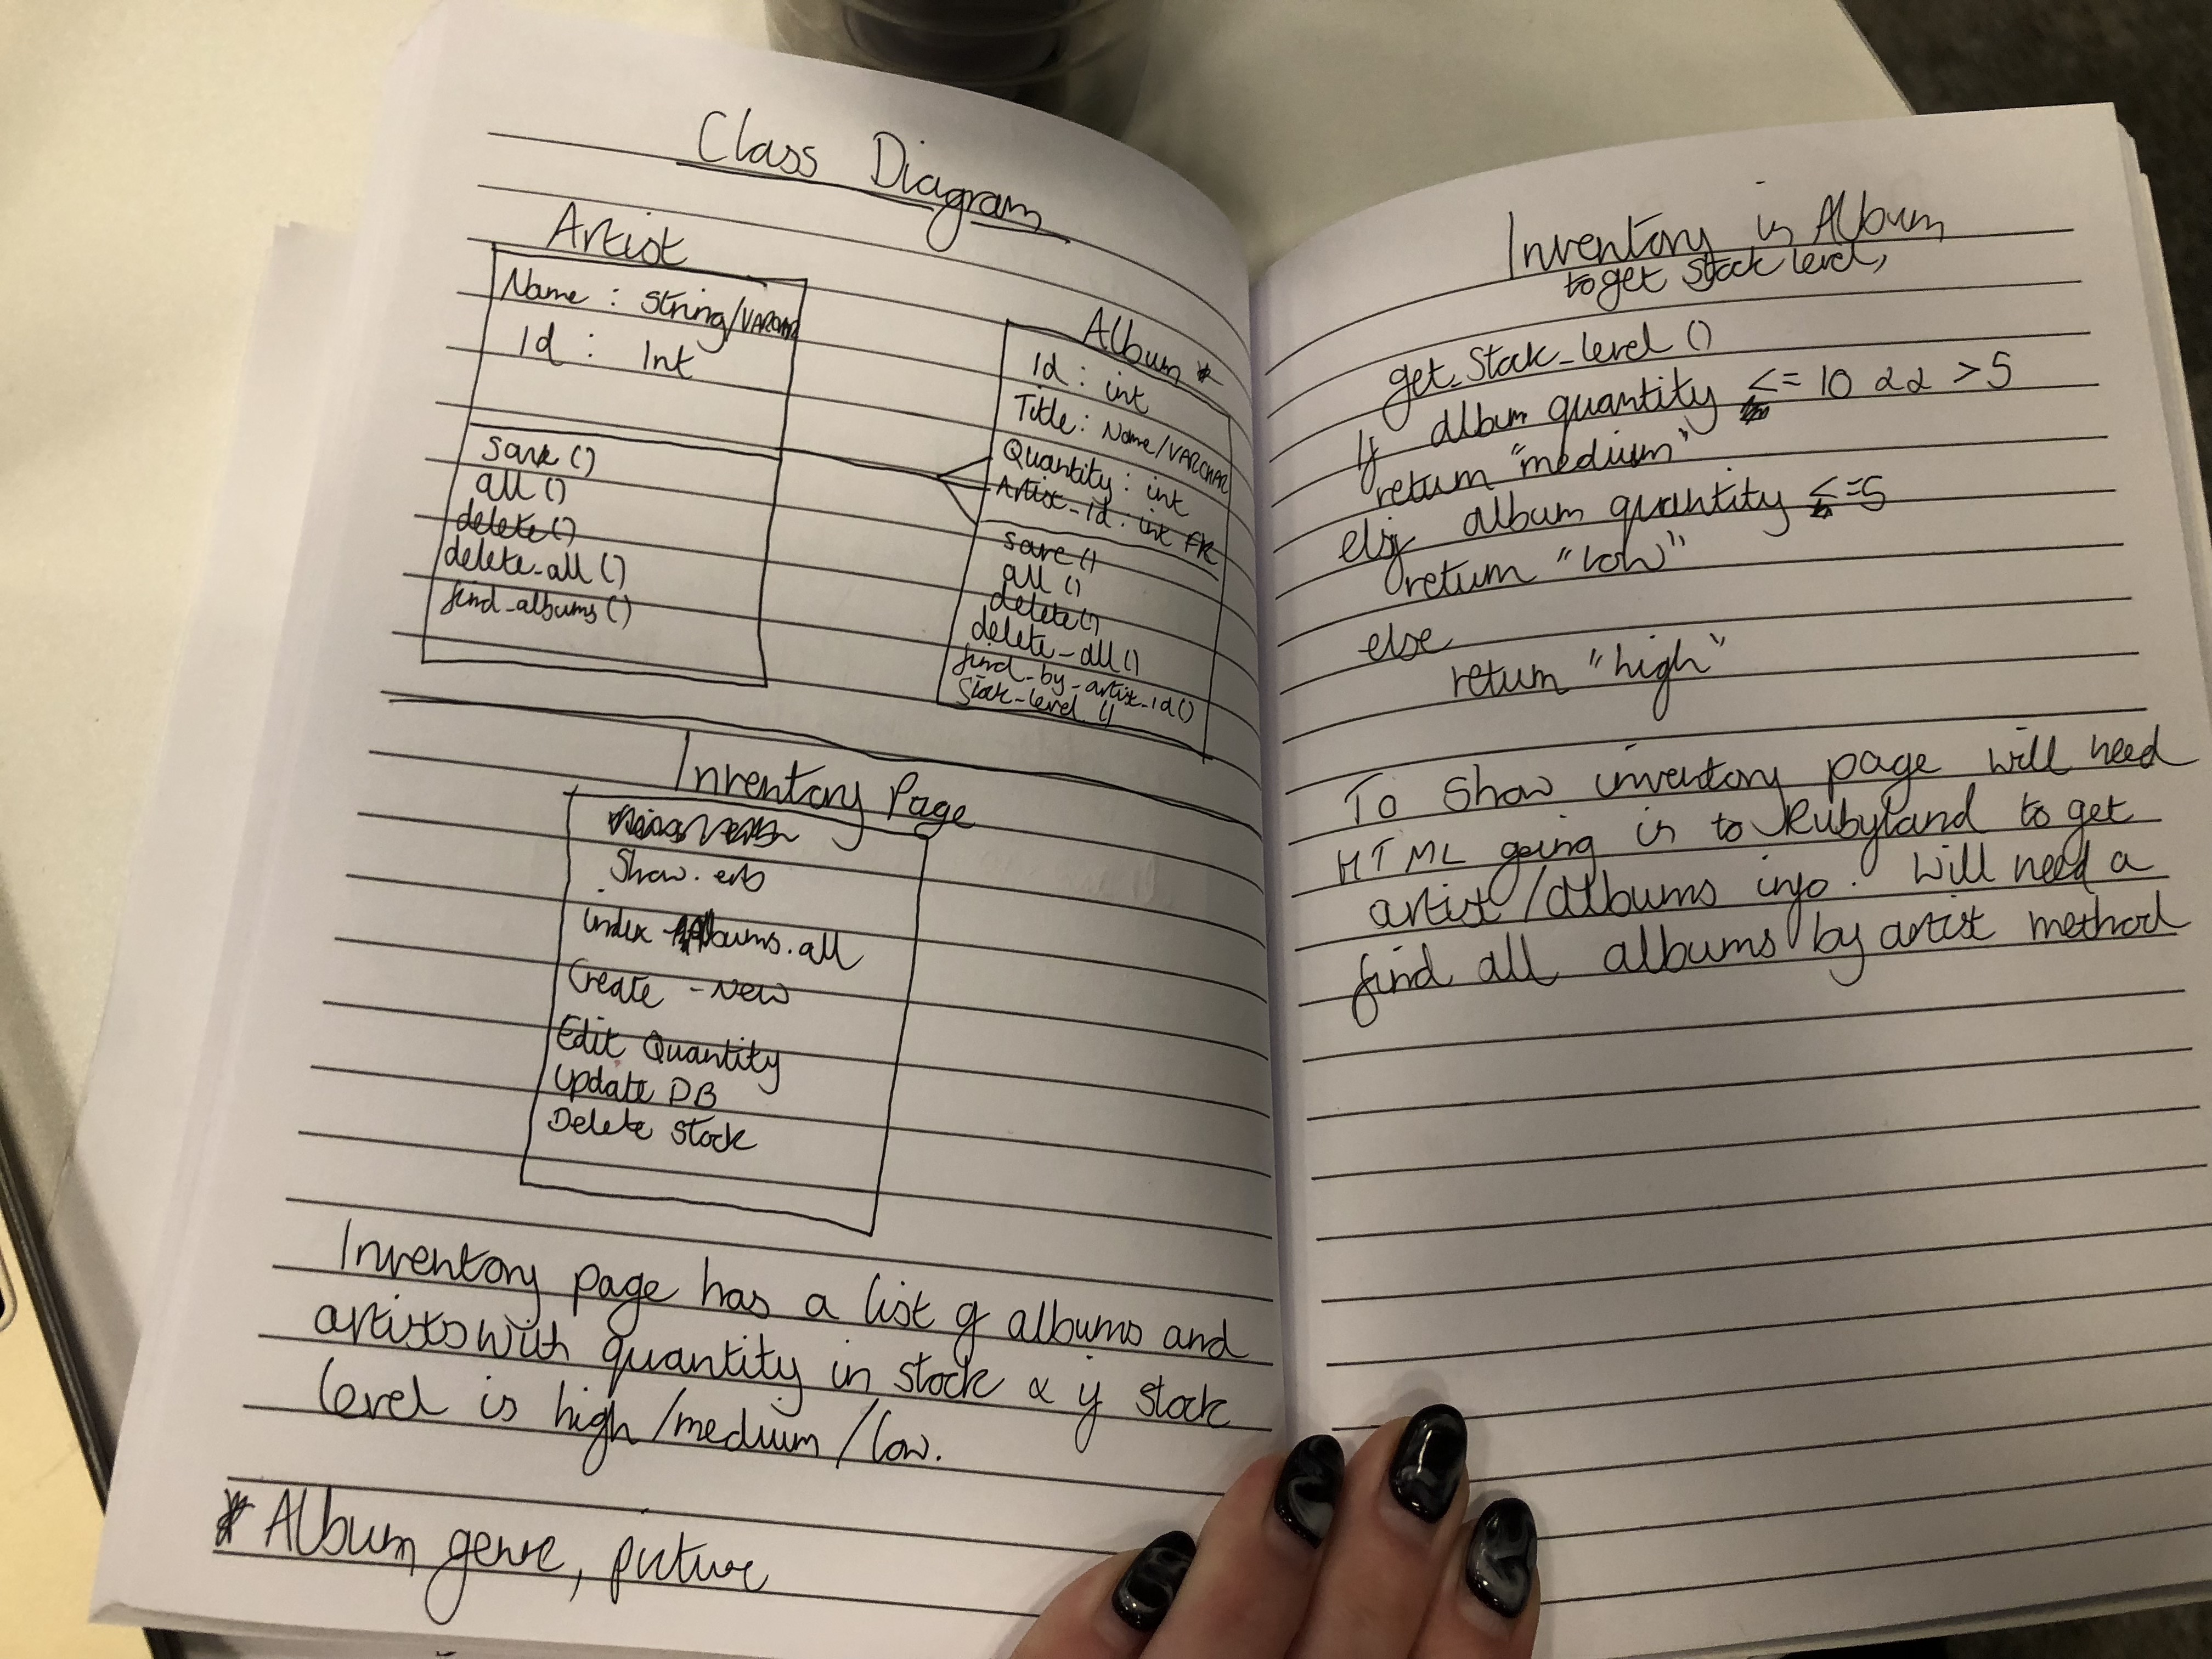 Class Diagram
Artist
Name : String/VARCHAR
Id : Int
Save ()
all ()
delete ()
delete_all ()
find_albums ()
Album *
Id : int
Title : Name/VARCHAR
Quantity : int
Artist_id : int FK
save ()
all ()
delete ()
delete_all ()
find_by_artist_id ()
Stock_level ()
Inventory Page
Show.erb
Index - Albums.all
Create - New
Edit Quantity
Update DB
Delete Stock
Inventory Page has a list of albums and
artists with quantity in stock & if stock
level is high/medium/low.
* Album genre, picture
Inventory in Album
to get stock level,
get_Stock_level ()
If album quantity <= 10 && > 5
return "medium"
elsif album quantity <= 5
return "low"
else
return "high"
To Show inventory page will need
HTML going in to Rubyland to get
artist/albums info. Will need a
find all albums by artist method